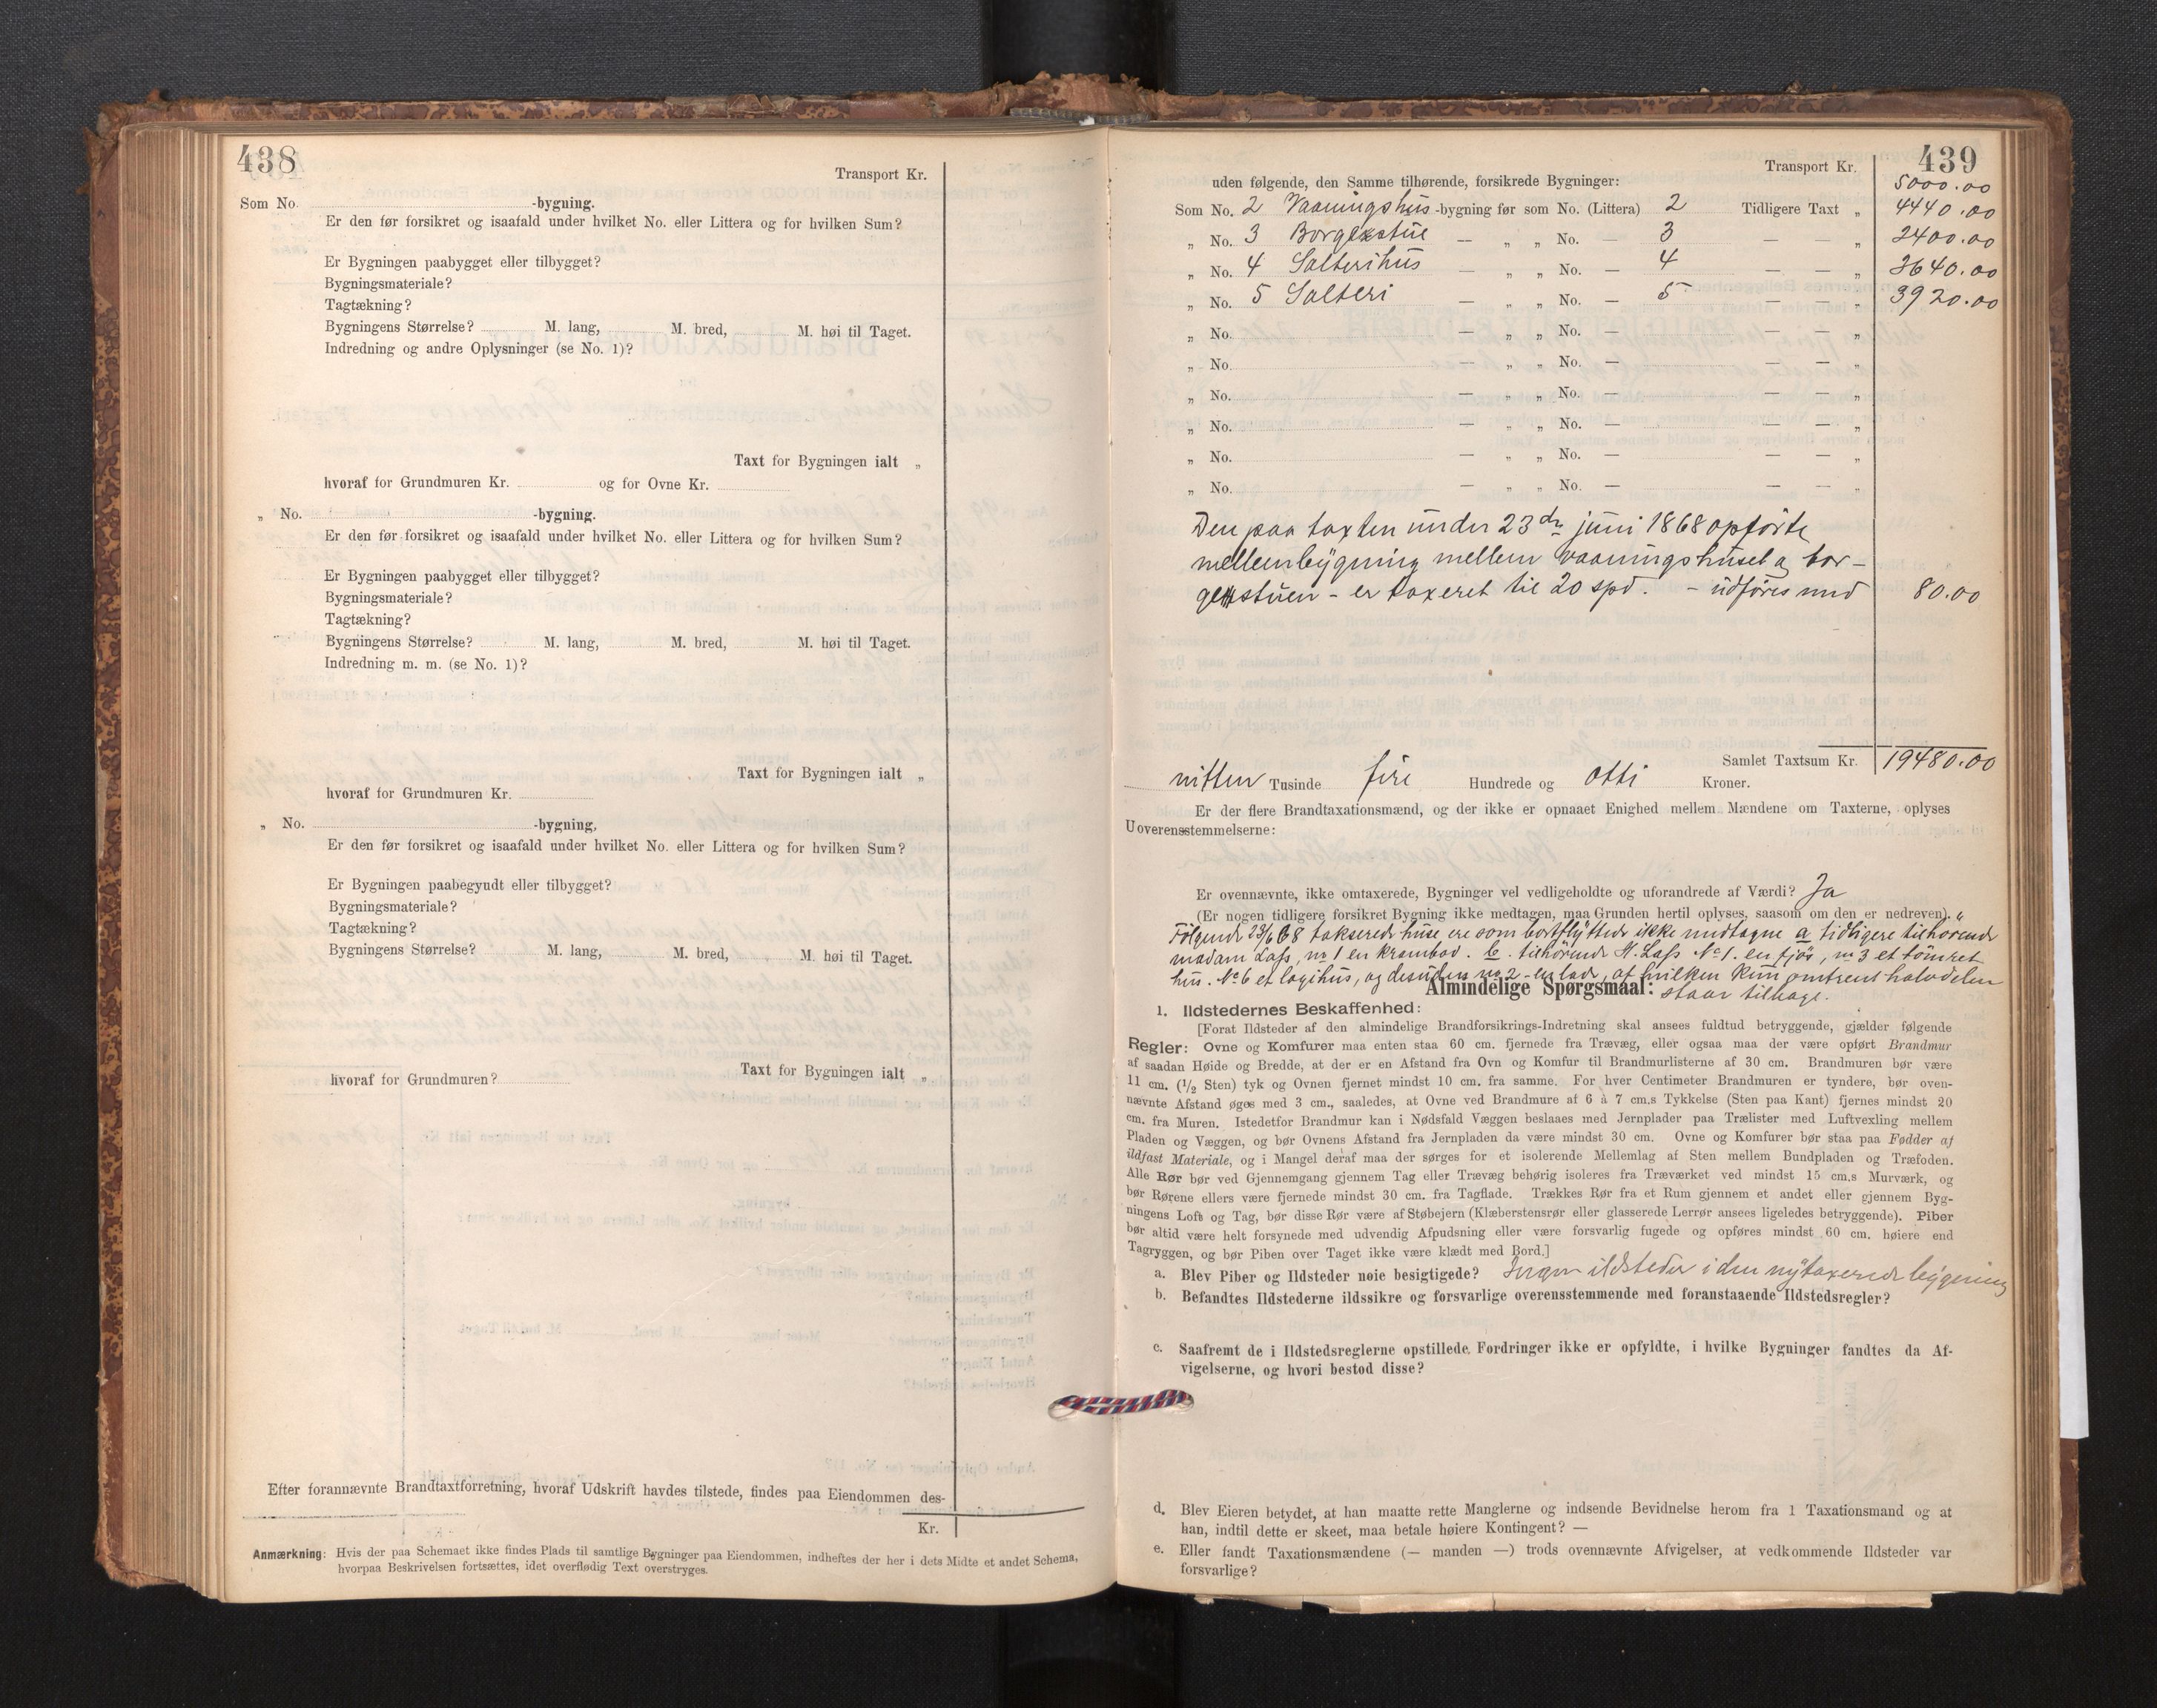 438
Transport Kr.
Som No. -bygning.
Er den før forsikret og isaafald under hvilket No. eller Littera og for hvilken Sum?
Er Bygningen paabygget eller tilbygget?
Bygningsmateriale?
Tagtækning?
Bygningens Størrelse? M. lang, M. bred, M. høi til Taget.
Indredning og andre Oplysninger (se No. 1)?
Taxt for Bygningen ialt „
hvoraf for Grundmuren Kr. og for Ovne Kr.
„ No. -bygning.
Er den før forsikret og isaafald under hvilket No. eller Littera og for hvilken Sum?
Er Bygningen paabygget eller tilbygget?
Bygningsmateriale?
Tagtækning?
Bygningens Størrelse? M. lang, M. bred, M. høi til Taget.
Indredning m. m. (se No. 1)?
Taxt for Bygningen ialt „
hvoraf for Grundmuren Kr.
„ No. -bygning,
Er den før forsikret og isaafald under hvilket No. eller Littera og for hvilken Sum?
Er Bygningen paabegyndt eller tilbygget?
Bygningsmateriale?
Tagtækning?
Bygningens Størrelse? M. lang, M. bred, M. høi til Taget.
Taxt for Bygningen ialt „
hvoraf for Grundmuren?
Efter forannævnte Brandtaxtforretning, hvoraf Udskrift havdes tilstede, findes paa Eiendommen des-
Kr.
Anmærkning: Hvis der paa Schemaet ikke findes Plads til samtlige Bygninger paa Eiendommen, indheftes der her i dets Midte et andet Schema,
hvorpaa Beskrivelsen fortsættes, idet overflødig Text overstryges.
439
Transport Kr. 5000.00
uden følgende, den Samme tilhørende, forsikrede Bygninger:
Som No. 2 Vaaningshus -bygning før som No. (Littera) 2 Tidligere Taxt „ 4440.00
„ No. 3 Borgestue — „ „ No. — 3 — — „ 2400.00
„ No. 4 Salterihus — „ „ No. — 4 — — „ 3640.00
„ No. 5 Salteri — „ „ No. — 5 — — „ 3920.00
„ No. — „ „ No. — — — „
„ No. — „ „ No. — — — „
„ No. — „ „ No. — — — „
„ No. — „ „ No. — — — „
„ No. — „ „ No. — — — „
„ No. — „ „ No. — — — „
Den paa taxten under 23de juni 1868 opførte
mellembygning mellem vaaningshuset og bor-
gestuen - er taxeret til 20 spd. - udføres med 80.00
Samlet Taxtsum Kr. 19480.00
nitten Tusinde fire Hundrede og otti Kroner.
Er der flere Brandtaxationsmænd, og der ikke er opnaaet Enighed mellem Mændene om Taxterne, oplyses
Uoverensstemmelserne:
Er ovennævnte, ikke omtaxerede, Bygninger vel vedligeholdte og uforandrede af Værdi? Ja
(Er nogen tidligere forsikret Bygning ikke medtagen, maa Grunden hertil oplyses, saasom om den er nedreven). „
Følgende 23/6 68 takserede huse ere som bortflyttede ikke medtagne a tidligere tilhørende
madam Lass, no 1 en krambod. b. tilhørende H. Lass No 1. en fjøs, no 3 et tømret
hus. No 6 et logihus, og desuden no 2 - en lade, af hvilken kun omtrent halvdelen
staar tilbage.
Almindelige Spørgsmaal:
1. Ildstedernes Beskaffenhed:
[Forat Ildsteder af den almindelige Brandforsikrings-Indretning skal ansees fuldtud betryggende, gjælder følgende
Regler: Ovne og Komfurer maa enten staa 60 cm. fjernede fra Trævæg, eller ogsaa maa der være opført Brandmur
af saadan Høide og Bredde, at der er en Afstand fra Ovn og Komfur til Brandmurlisterne af 30 cm. Brandmuren bør være
11 cm. (1/2 Sten) tyk og Ovnen fjernet mindst 10 cm. fra samme. For hver Centimeter Brandmuren er tyndere, bør oven-
nævnte Afstand øges med 3 cm., saaledes, at Ovne ved Brandmure af 6 à 7 cm.s Tykkelse (Sten paa Kant) fjernes mindst 20
cm. fra Muren. Istedetfor Brandmur kan i Nødsfald Væggen beslaaes med Jernplader paa Trælister med Luftvexling mellem
Pladen og Væggen, og bør Ovnens Afstand fra Jernpladen da være mindst 30 cm. Ovne og Komfurer bør staa paa Fødder af
ildfast Materiale, og i Mangel deraf maa der sørges for et isolerende Mellemlag af Sten mellem Bundpladen og Træfoden.
Alle Rør bør ved Gjennemgang gjennem Tag eller Trævæg behørig isoleres fra Træværket ved mindst 15 cm.s Murværk, og
bør Rørene ellers være fjernede mindst 30 cm. fra Tagflade. Trækkes Rør fra et Rum gjennem et andet eller gjennem Byg-
ningens Loft og Tag, bør disse Rør være af Støbejern (Klæberstensrør eller glasserede Lerrør ansees ligeledes betryggende). Piber
bør altid være helt forsynede med udvendig Afpudsning eller være forsvarlig fugede og opføres mindst 60 cm. høiere end
Tagryggen, og bør Piben over Taget ikke være klædt med Bord.]
a. Blev Piber og Ildsteder nøie besigtigede? Ingen ildsteder i den nytaxerede bygning
b. Befandtes Ildstederne ildssikre og forsvarlige overensstemmende med foranstaaende Ildstedsregler?
c. Saafremt de i Ildstedsreglerne opstillede Fordringer ikke er opfyldte, i hvilke Bygninger fandtes da Af-
vigelserne, og hvori bestod disse?
d. Blev Eieren betydet, at han maatte rette Manglerne og indsende Bevidnelse herom fra 1 Taxationsmand og at
han, indtil dette er skeet, maa betale høiere Kontingent? —
e. Eller fandt Taxationsmændene (— manden —) trods ovennævnte Afvigelser, at vedkommende Ildsteder var
forsvarlige?